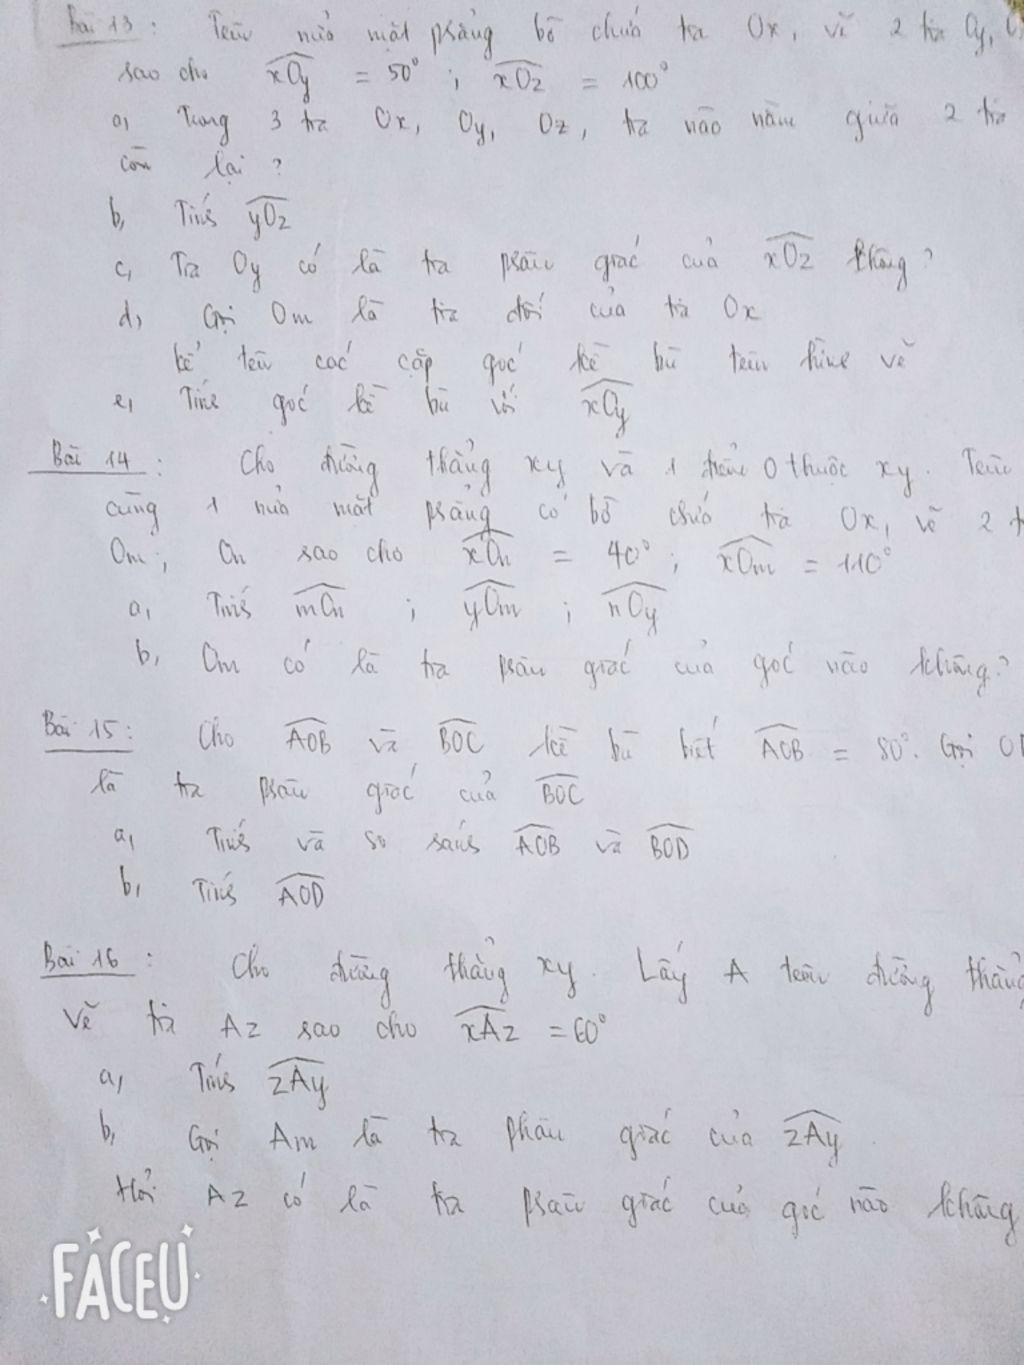 Bài 13 : Trên nửa mặt phẳng bờ chứa tia Ox, vẽ 2 tia Oy,
sao cho xOy = 50° ; xOz = 100°
a, Trong 3 tia Ox, Oy, Oz, tia nào nằm giữa 2 tia
còn lại ?
b, Tính yOz
c, Tia Oy có là tia phân giác của xOz không ?
d, Gọi Om là tia đối của tia Ox
kể tên các cặp góc kề bù trên hình vẽ
e, Tính góc kề bù với xOy
Bài 14 : Cho đường thẳng xy và 1 điểm O thuộc xy. Trên
cùng 1 nửa mặt phẳng có bờ chứa tia Ox, vẽ 2
Om ; On sao cho xOn = 40° ; xOm = 110°
a, Tính mOn ; yOm ; nOy
b, Om có là tia phân giác của góc nào không ?
Bài 15 : Cho AOB và BOC kề bù biết AOB = 80°. Gọi
là tia phân giác của BOC
a, Tính và so sánh AOB và BOD
b, Tính AOD
Bài 16 : Cho đường thẳng xy. Lấy A trên đường thẳng
Vẽ tia Az sao cho xAz = 60°
a, Tính zAy
b, Gọi Am là tia phân giác của zAy.
Hỏi Az có là tia phân giác của góc nào không
FACEU